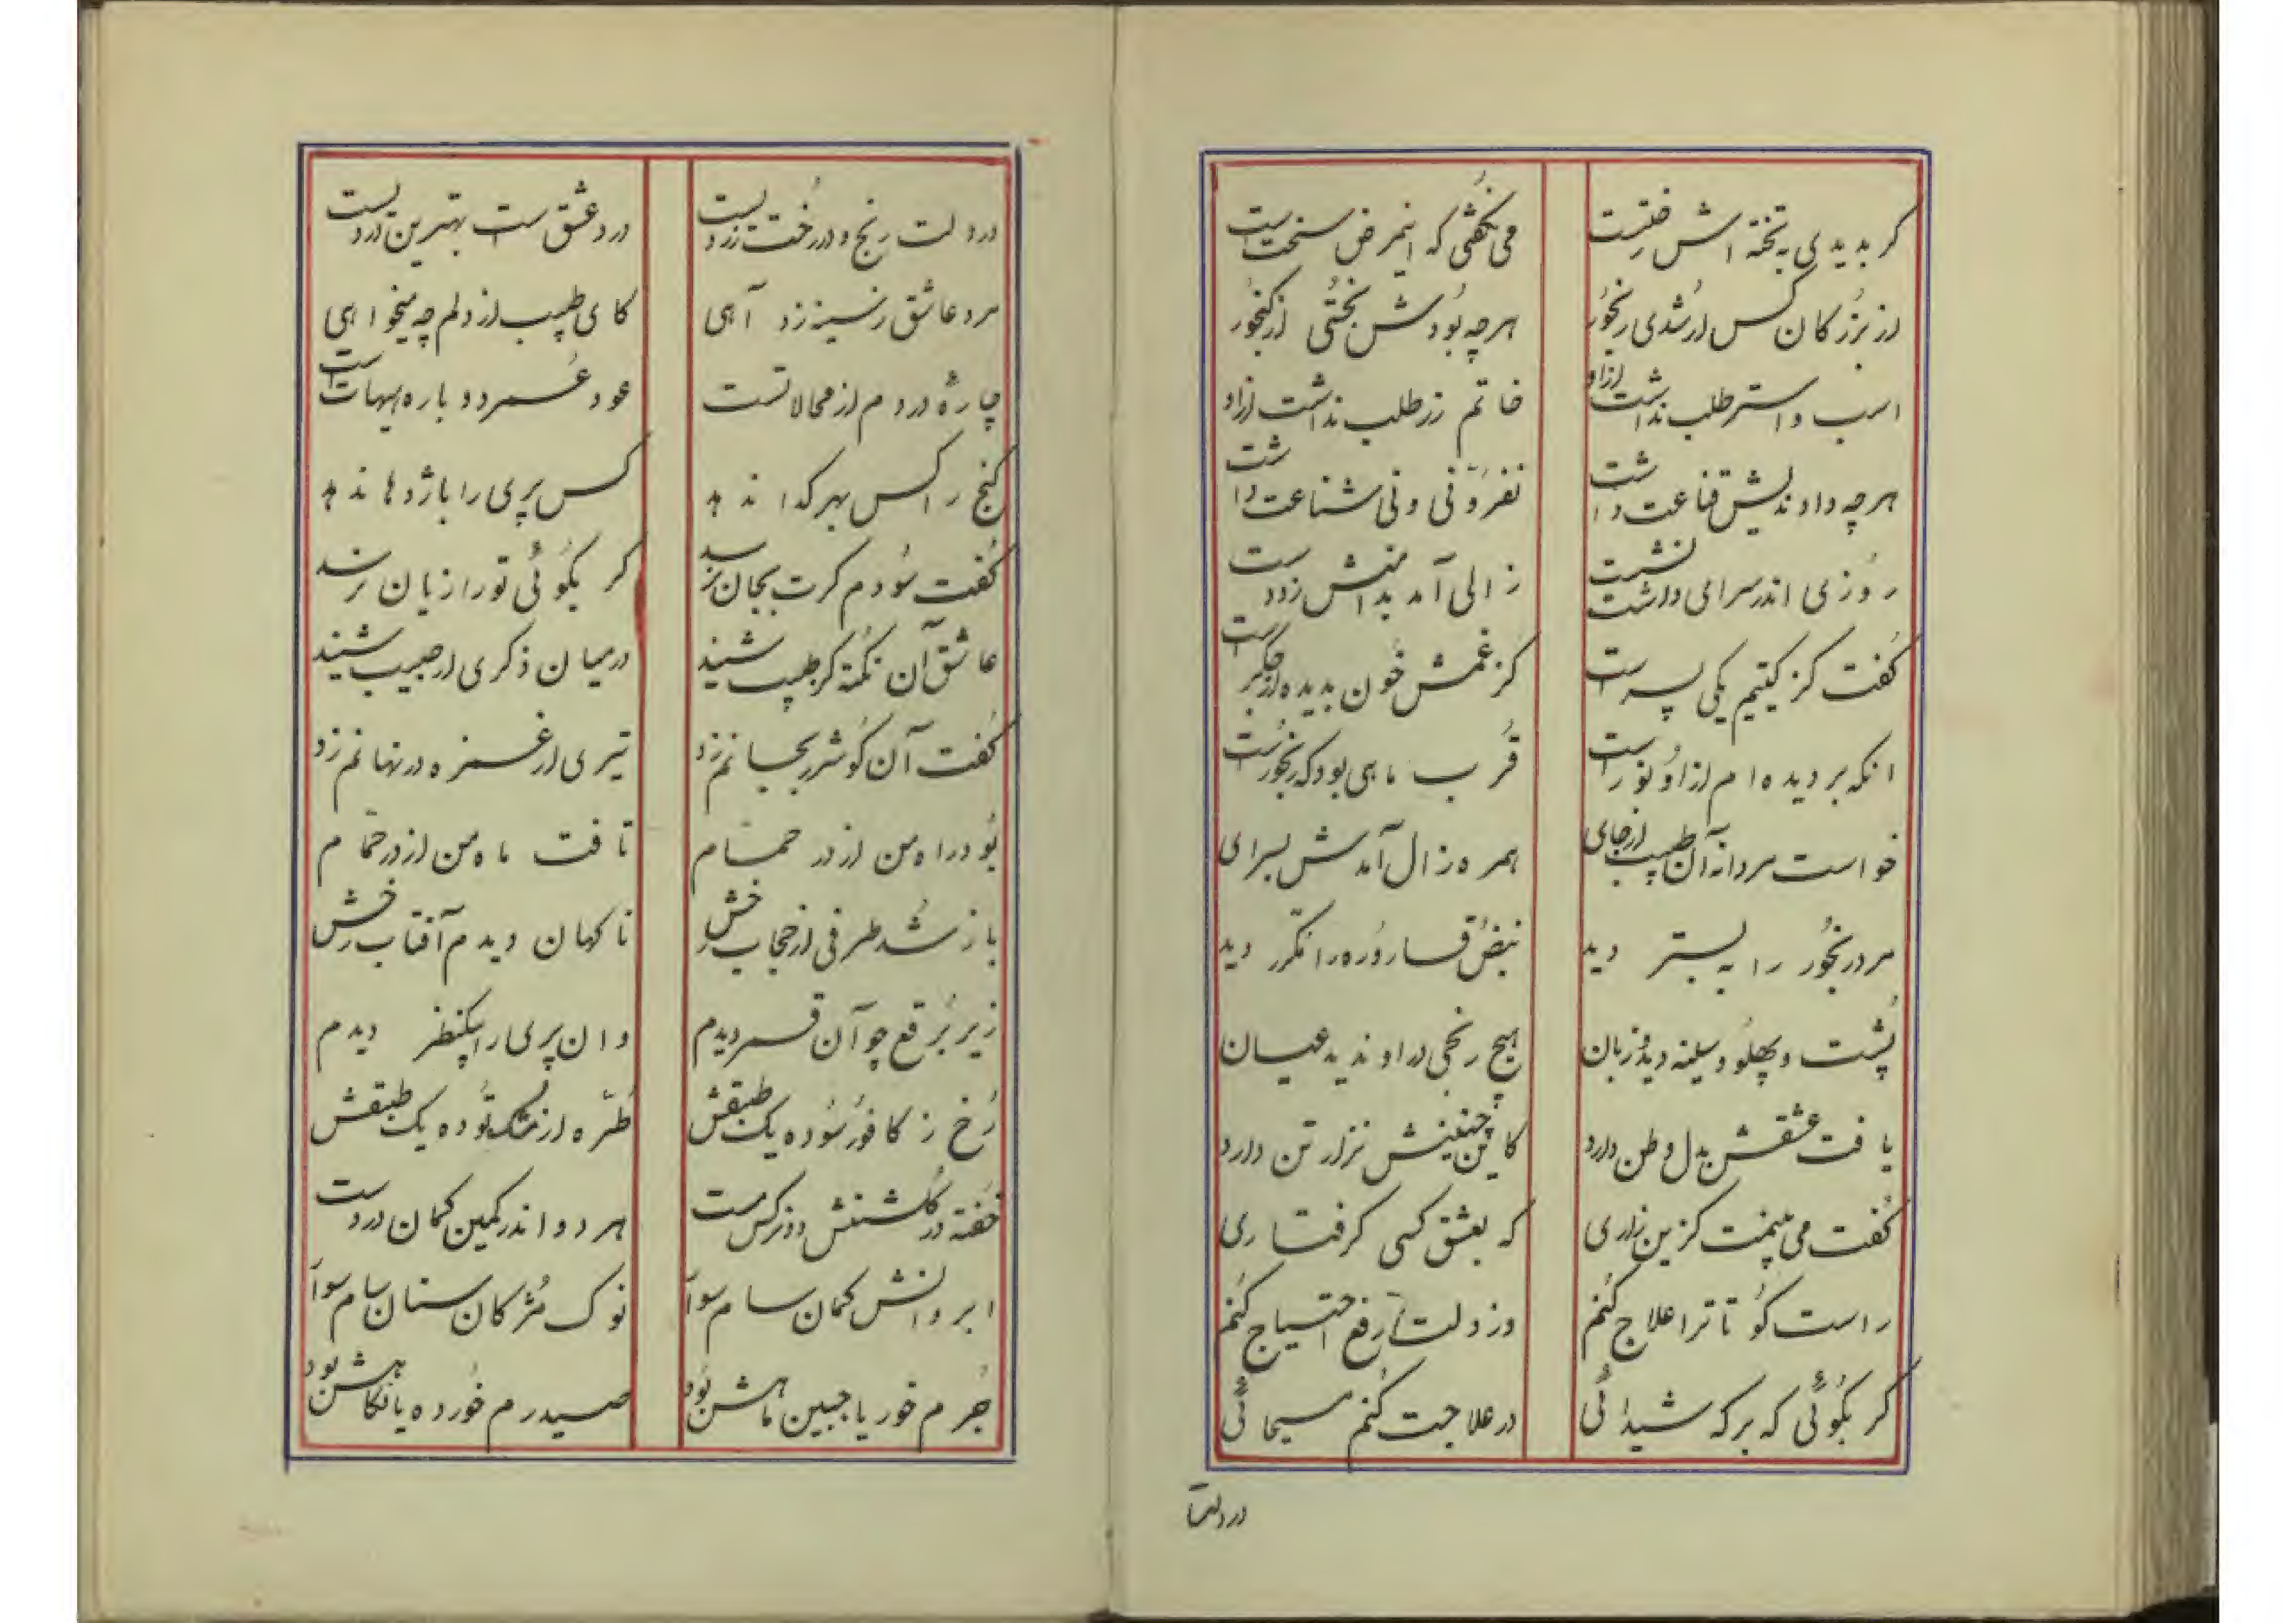 کر بدیدی به تخته اش رختست می نکفتی که اینمرض سختست
از بزرکان کس ار شدی رنجور هرچه بودش بختی از کنجور
اسب و استر طلب نداشت ازاو خاتم زر طلب نداشت ازاو
هرچه دادندیش قناعت داشت نفروتنی و نی شناعت داشت
روزی اندر سرای داشت نشست زالی آمد بدامنش زد دست
کفت کز کیتیم یکی پسر است کز غمش خون بدیده از جکر است
انکه بر دیده ام ازاو نور است قرب ماهی بود که رنجور است
خواست مردانه آن طبیب از جای همره زال آمدش بسرای
مرد رنجور را به بستر دید نبض قاروره را مکرر دید
پشت و پهلو و سینه دید و زبان هیچ رنجی در او ندید عیان
یافت عشقش بدل وطن دارد کاین چنینش نزار تن دارد
کفت می بینمت کزین زاری که بعشق کسی کرفتاری
راست کو تا ترا علاج کنم وز دولت رفع احتیاج کنم
کر بکوئی که بر که شیدائی در علاجت کنم مسیحائی
در دلت
در دلت رنج و در رخت زردیست درد عشق است بهترین دردیست
مرد عاشق ز سینه زد آهی کای طبیب از دلم چه میخواهی
چارهٔ دردم از محالاتست عود عمر دوباره هیهات است
کنج را کس بهر کدا ندهد کس پری را باژدها ندهد
کفت سودم کرت بجان رسد کر بکوئی تو را زیان نرسد
عاشق آن نکته کز طبیب شنید در میان ذکری از حبیب شنید
کفت آن کو شرر بجانم زد تیری از غمزه در نهانم زد
بود راه من از در حمام تافت ماه من از در حمام
باز شد طرفی از حجاب رخش ناکهان دیدم آفتاب رخش
زیر برقع چو آن قمر دیدم وان پری را بیکنظر دیدم
رخ ز کافور سوده یک طبقش طره از مشک توده یک طبقش
خفته در کلشنش دو نرکس مست هر دو اندر کمین کمان در دست
ابروانش کمان سام سوار نوک مژکان سنان سام سوار
جرم خور یا جبین ماهش بود صید رم خورده یا نکاهش بود